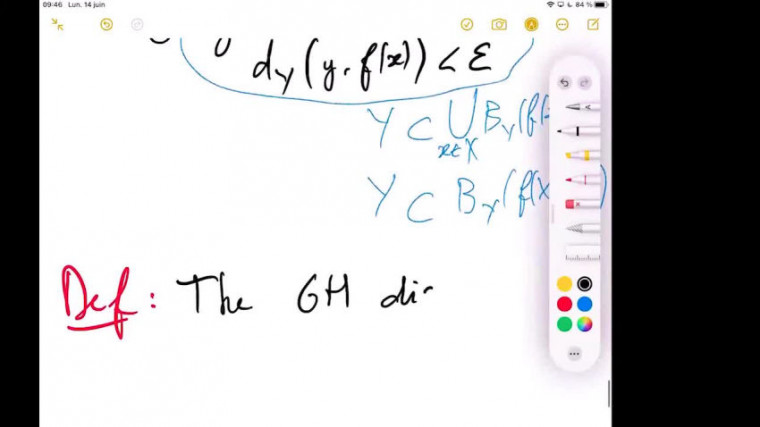 09:46 Lun. 14 juin 84 %
d_Y(y, f(x)) < ε
Y ⊂ ⋃_{x∈X} B_Y(f(
Y ⊂ B_Y(f(X )
Def : The GH dis